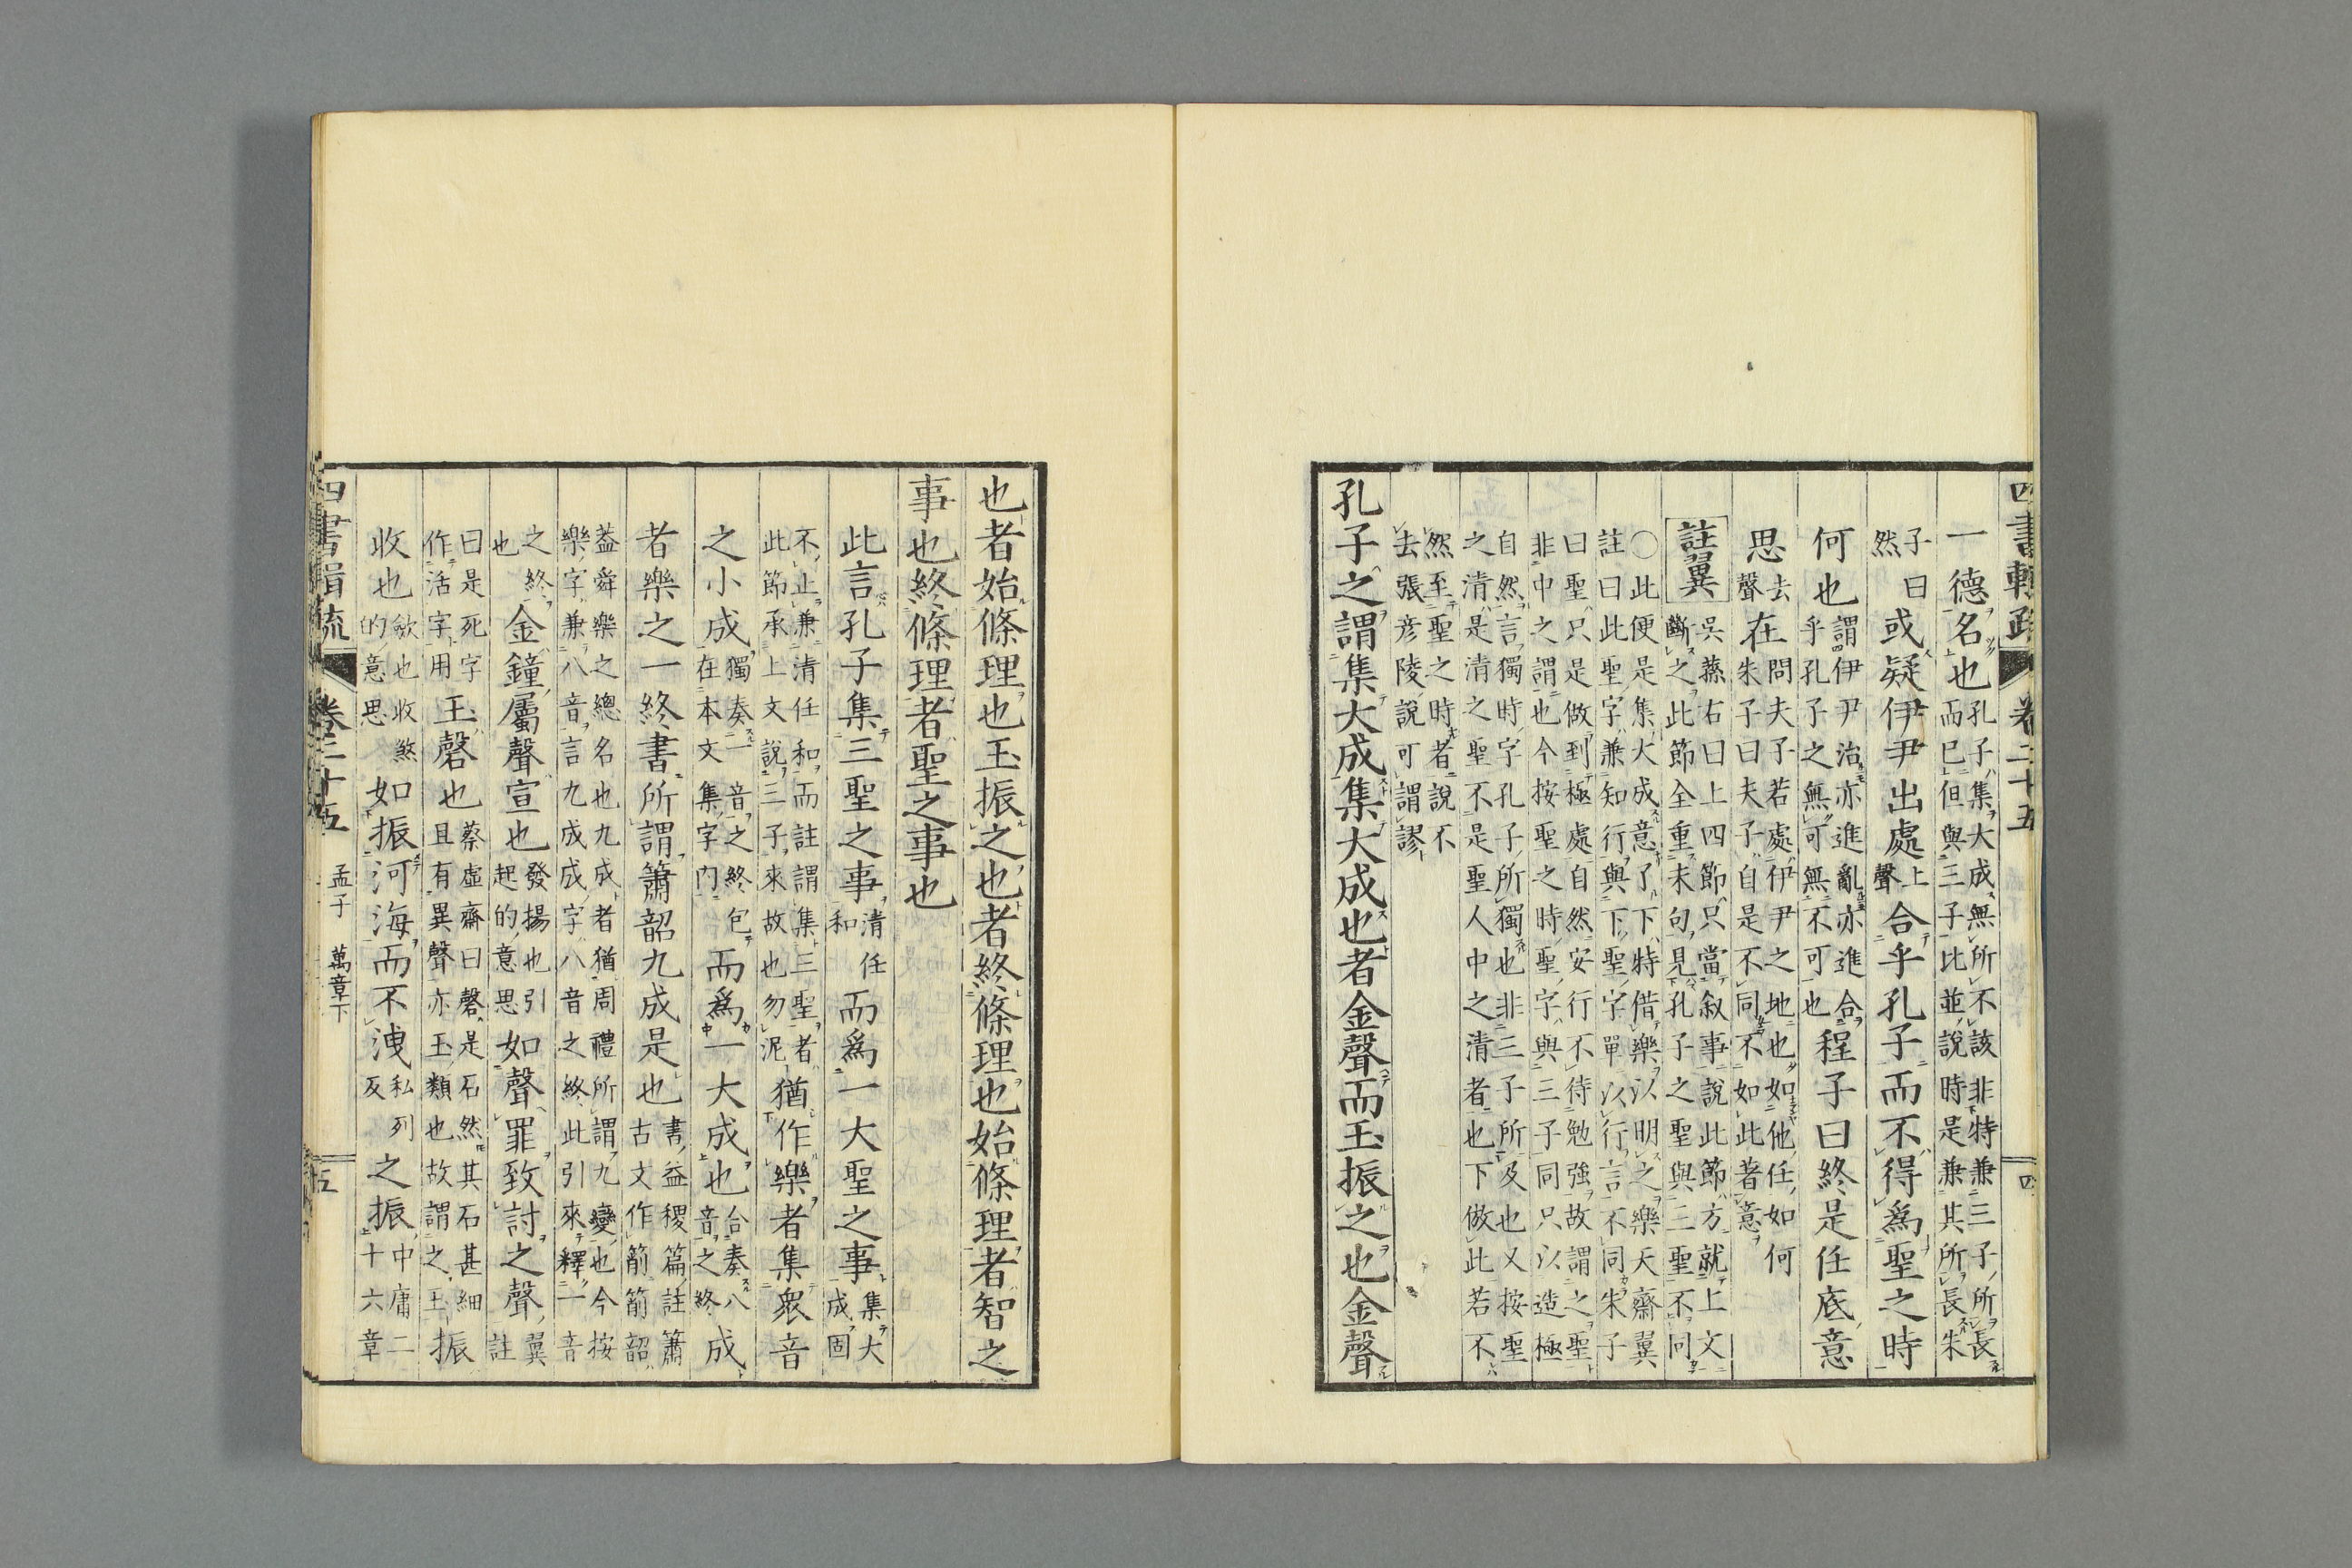 四書輯疏 卷二十五 四
一德名也孔子集大成無所不該非特兼三子所長
而已但與三子比並說時是兼其所長朱
子曰
然或疑伊尹出處上聲合乎孔子而不得爲聖之時
何也謂伊尹治亦進亂亦進合
乎孔子之無可無不可也程子曰終是任底意
思去聲在問夫子若處伊尹之地也如他任如何
朱子曰夫子自是不同不如此著意
註翼吳蓀右曰上四節只當叙事說此節方就上文
斷之此節全重末句見孔子之聖與三聖不同
○此便是集大成意了下特借樂以明之樂天齋翼
註曰此聖字兼知行與下聖字單以行言不同朱子
曰聖只是做到極處自然安行不待勉強故謂之聖
非中之謂也今按聖之時聖字與三子同只以造極
自然言獨時字孔子所獨也非三子所及也又按聖
之清是清之聖不是聖人中之清者也下倣此若不
然至聖之時者說不
去張彥陵說可謂謬
孔子之謂集大成集大成也者金聲而玉振之也金聲
也者始條理也玉振之也者終條理也始條理者智之
事也終條理者聖之事也
此言孔子集三聖之事清任和而爲一大聖之事集大成固
不止兼清任和而註謂集三聖者
此節承上文說三子來故也勿泥猶作樂者集衆音
之小成獨奏一音之終包在本文集字內而爲一大成也合奏八音之終成
者樂之一終書所謂簫韶九成是也書益稷篇註簫古文作箾箾韶
蓋舜樂之總名也九成者猶周禮所謂九變也今按
樂字兼八音言九成成字八音之終此引來釋一音
之終也金鐘屬聲宣也發揚也引起的意思如聲罪致討之聲翼註
曰是死字作活字用玉磬也蔡虛齋曰磬是石然其石甚細
且有異聲亦玉類也故謂之玉振
收也斂也收煞的意思如振河海而不洩私列反之振中庸二十六章
四書輯疏 卷二十五 孟子 萬章下 五